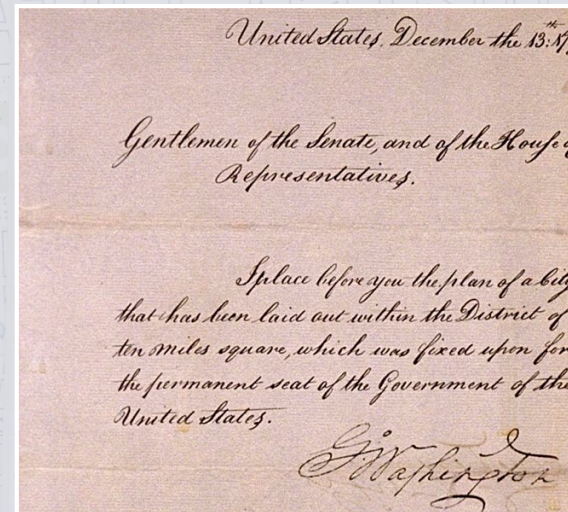 United States, December the 13:th 17
Gentlemen of the Senate, and of the House o
Representatives.
I place before you the plan of a City
that has been laid out within the District of
ten miles square, which was fixed upon for
the permanent seat of the Government of the
United States.
G:Washington